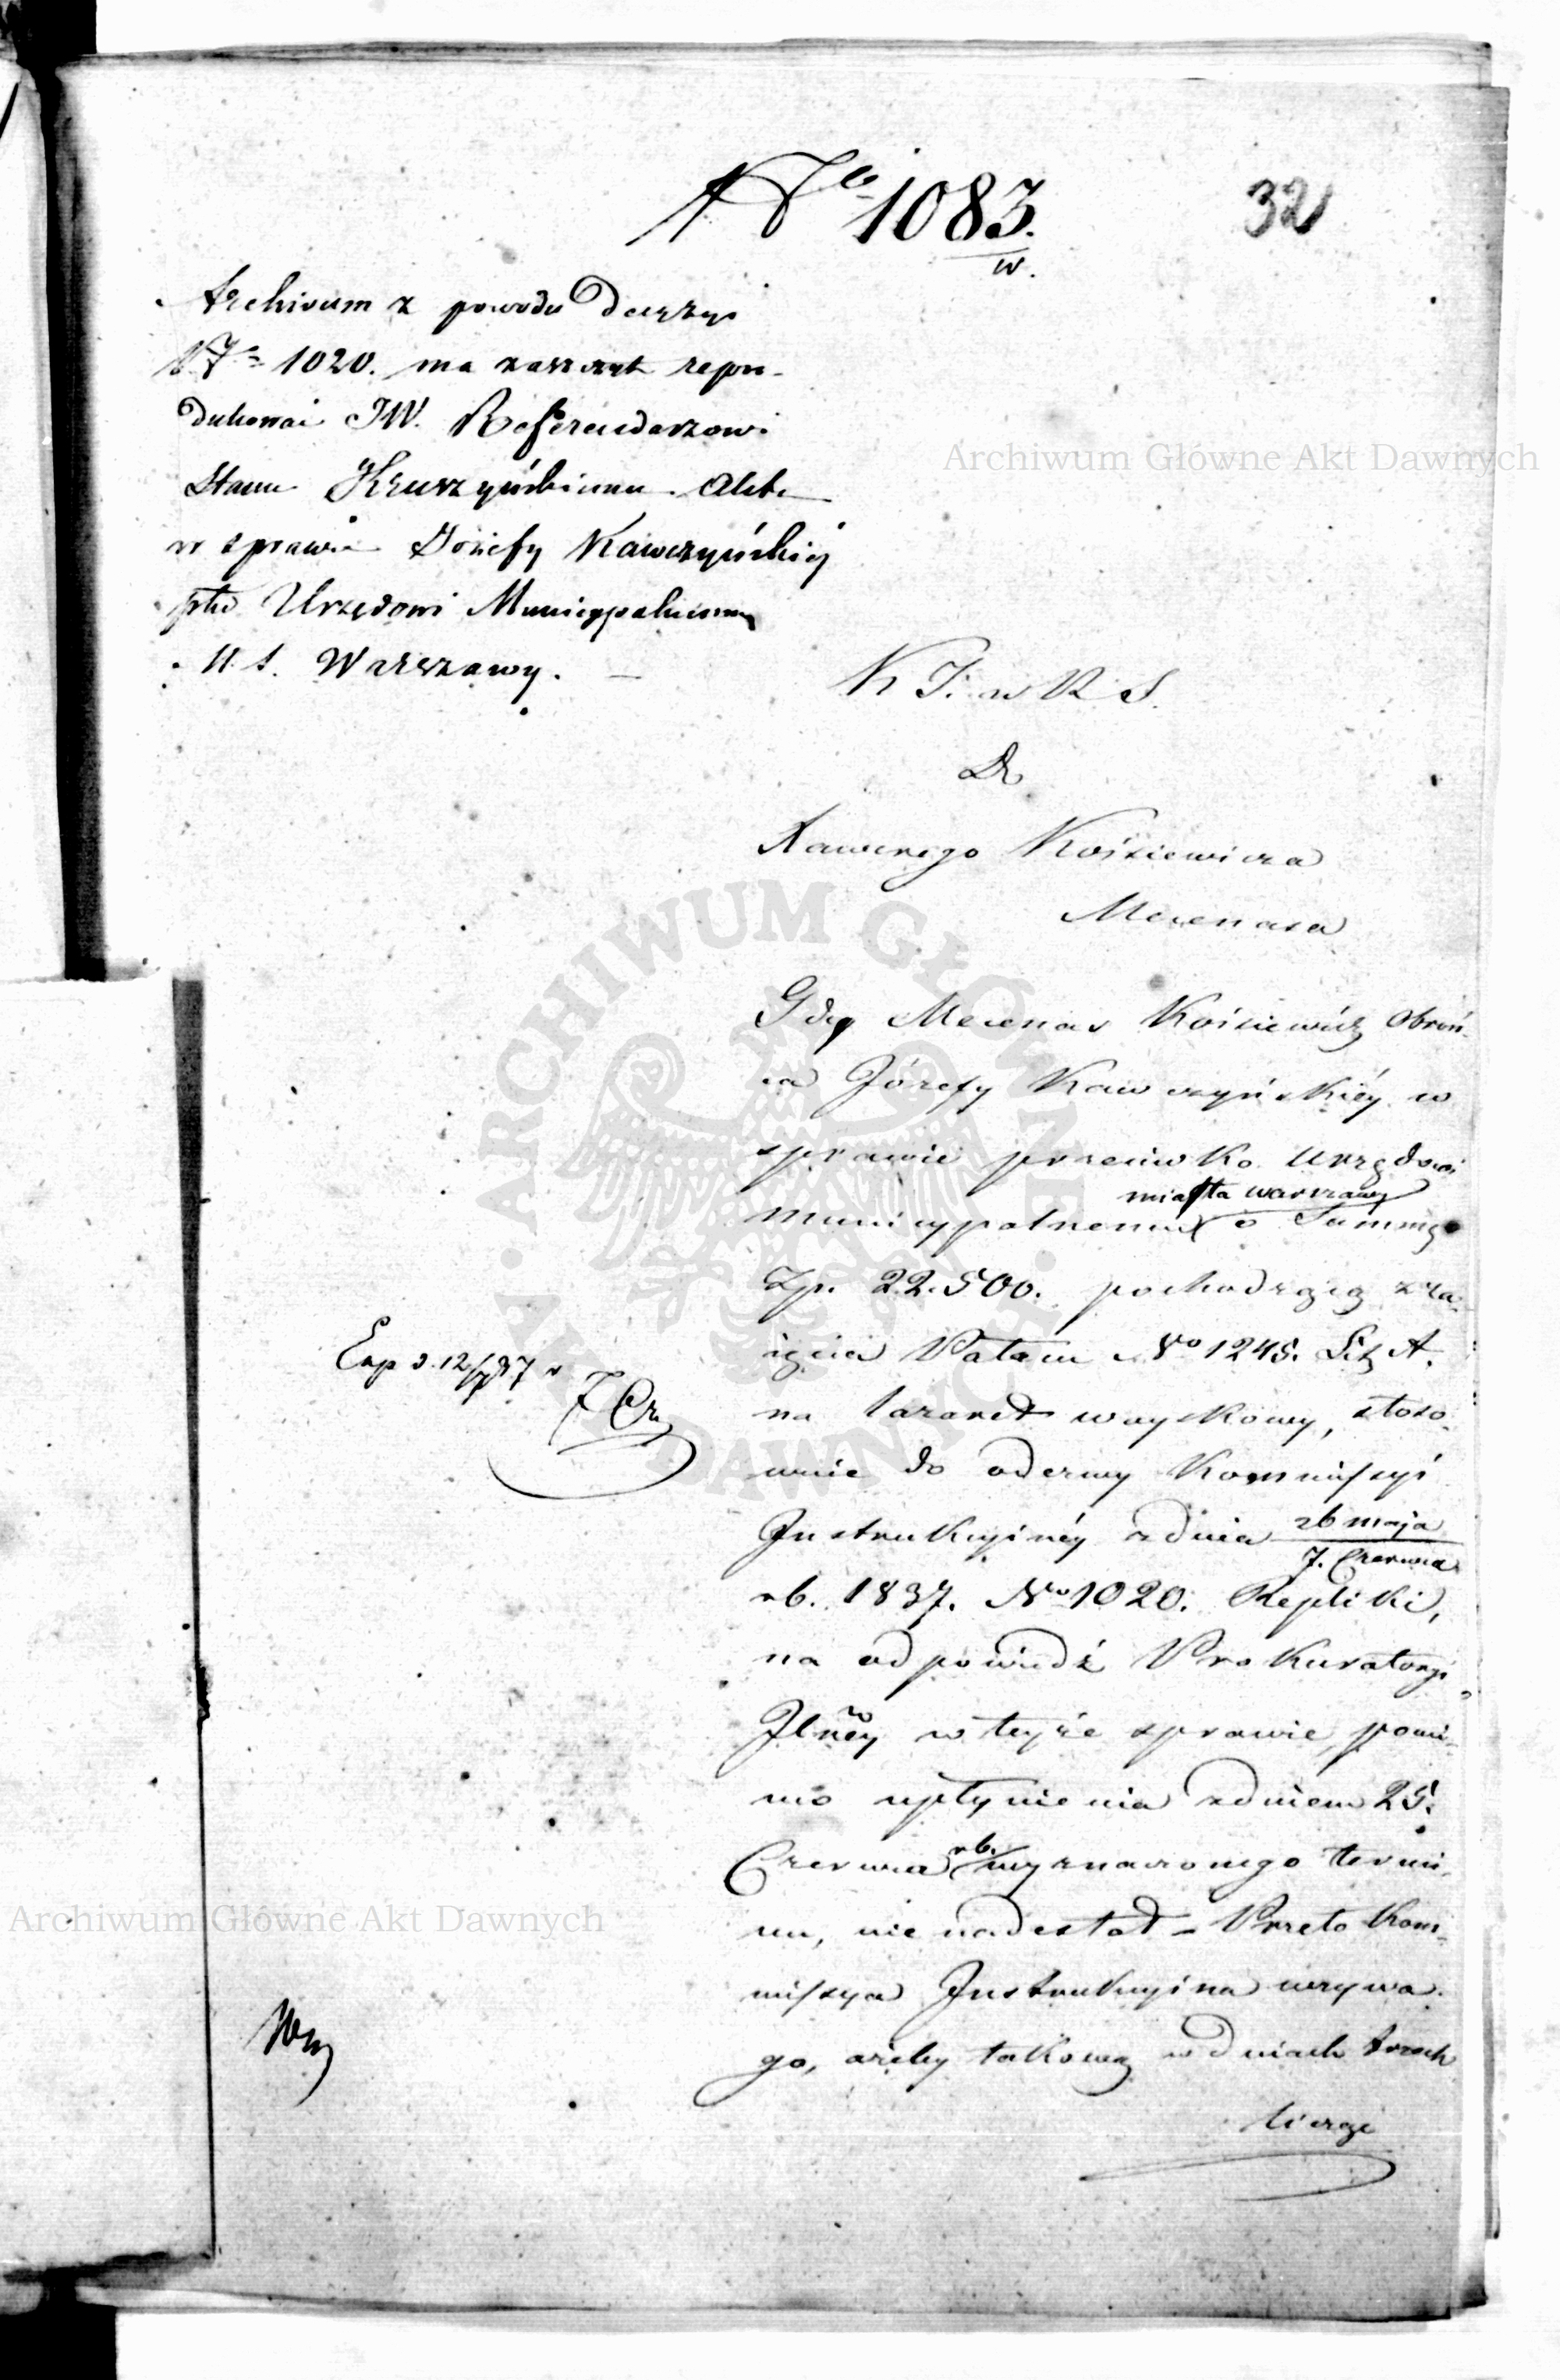 No 1083.
w.
32
Archivum z powodu Decyzyi
No 1020. ma zaraz akt repro-
dukować JW. Referendarzowi
Stanu Kruszyńskiemu Akta
w sprawie Józefy Kawczyńskiéj
ptko Urzędowi Municypalnemu
M. S. Warszawy.
K I. w R S.
Do
Xawerego Koźiewicza
Mecenasa
Gdy Mecenas Koźiewicz Obroń-
ca Józefy Kawczyńskiéy w
sprawie przeciwko Urzędowi
miasta warszawy
Municypalnemu o Summę
Zp. 22.500. pochodzącą z za-
ięcia Pałacu No 1245. Lit A.
na lazaret woyskowy, stoso-
wnie do odezwy Kommissyi
Instrukcyinéy z dnia 26 maja
7. Czerwca
rb. 1837. No 1020. Repliki,
na odpowiedź Prokuratoryi
Jlnéy w teyże sprawie, pomi-
mo upłynienia z dniem 25.
Czerwca rb. wyznaczonego termi-
nu, nie nadesłał – Przeto Kom-
missya Instrukcyina wzywa
go, ażeby takową w dniach trzech
licząc
Exp d. 12/7 37 r
Archiwum Główne Akt Dawnych
Archiwum Główne Akt Dawnych
ARCHIWUM GŁÓWNE AKT DAWNYCH